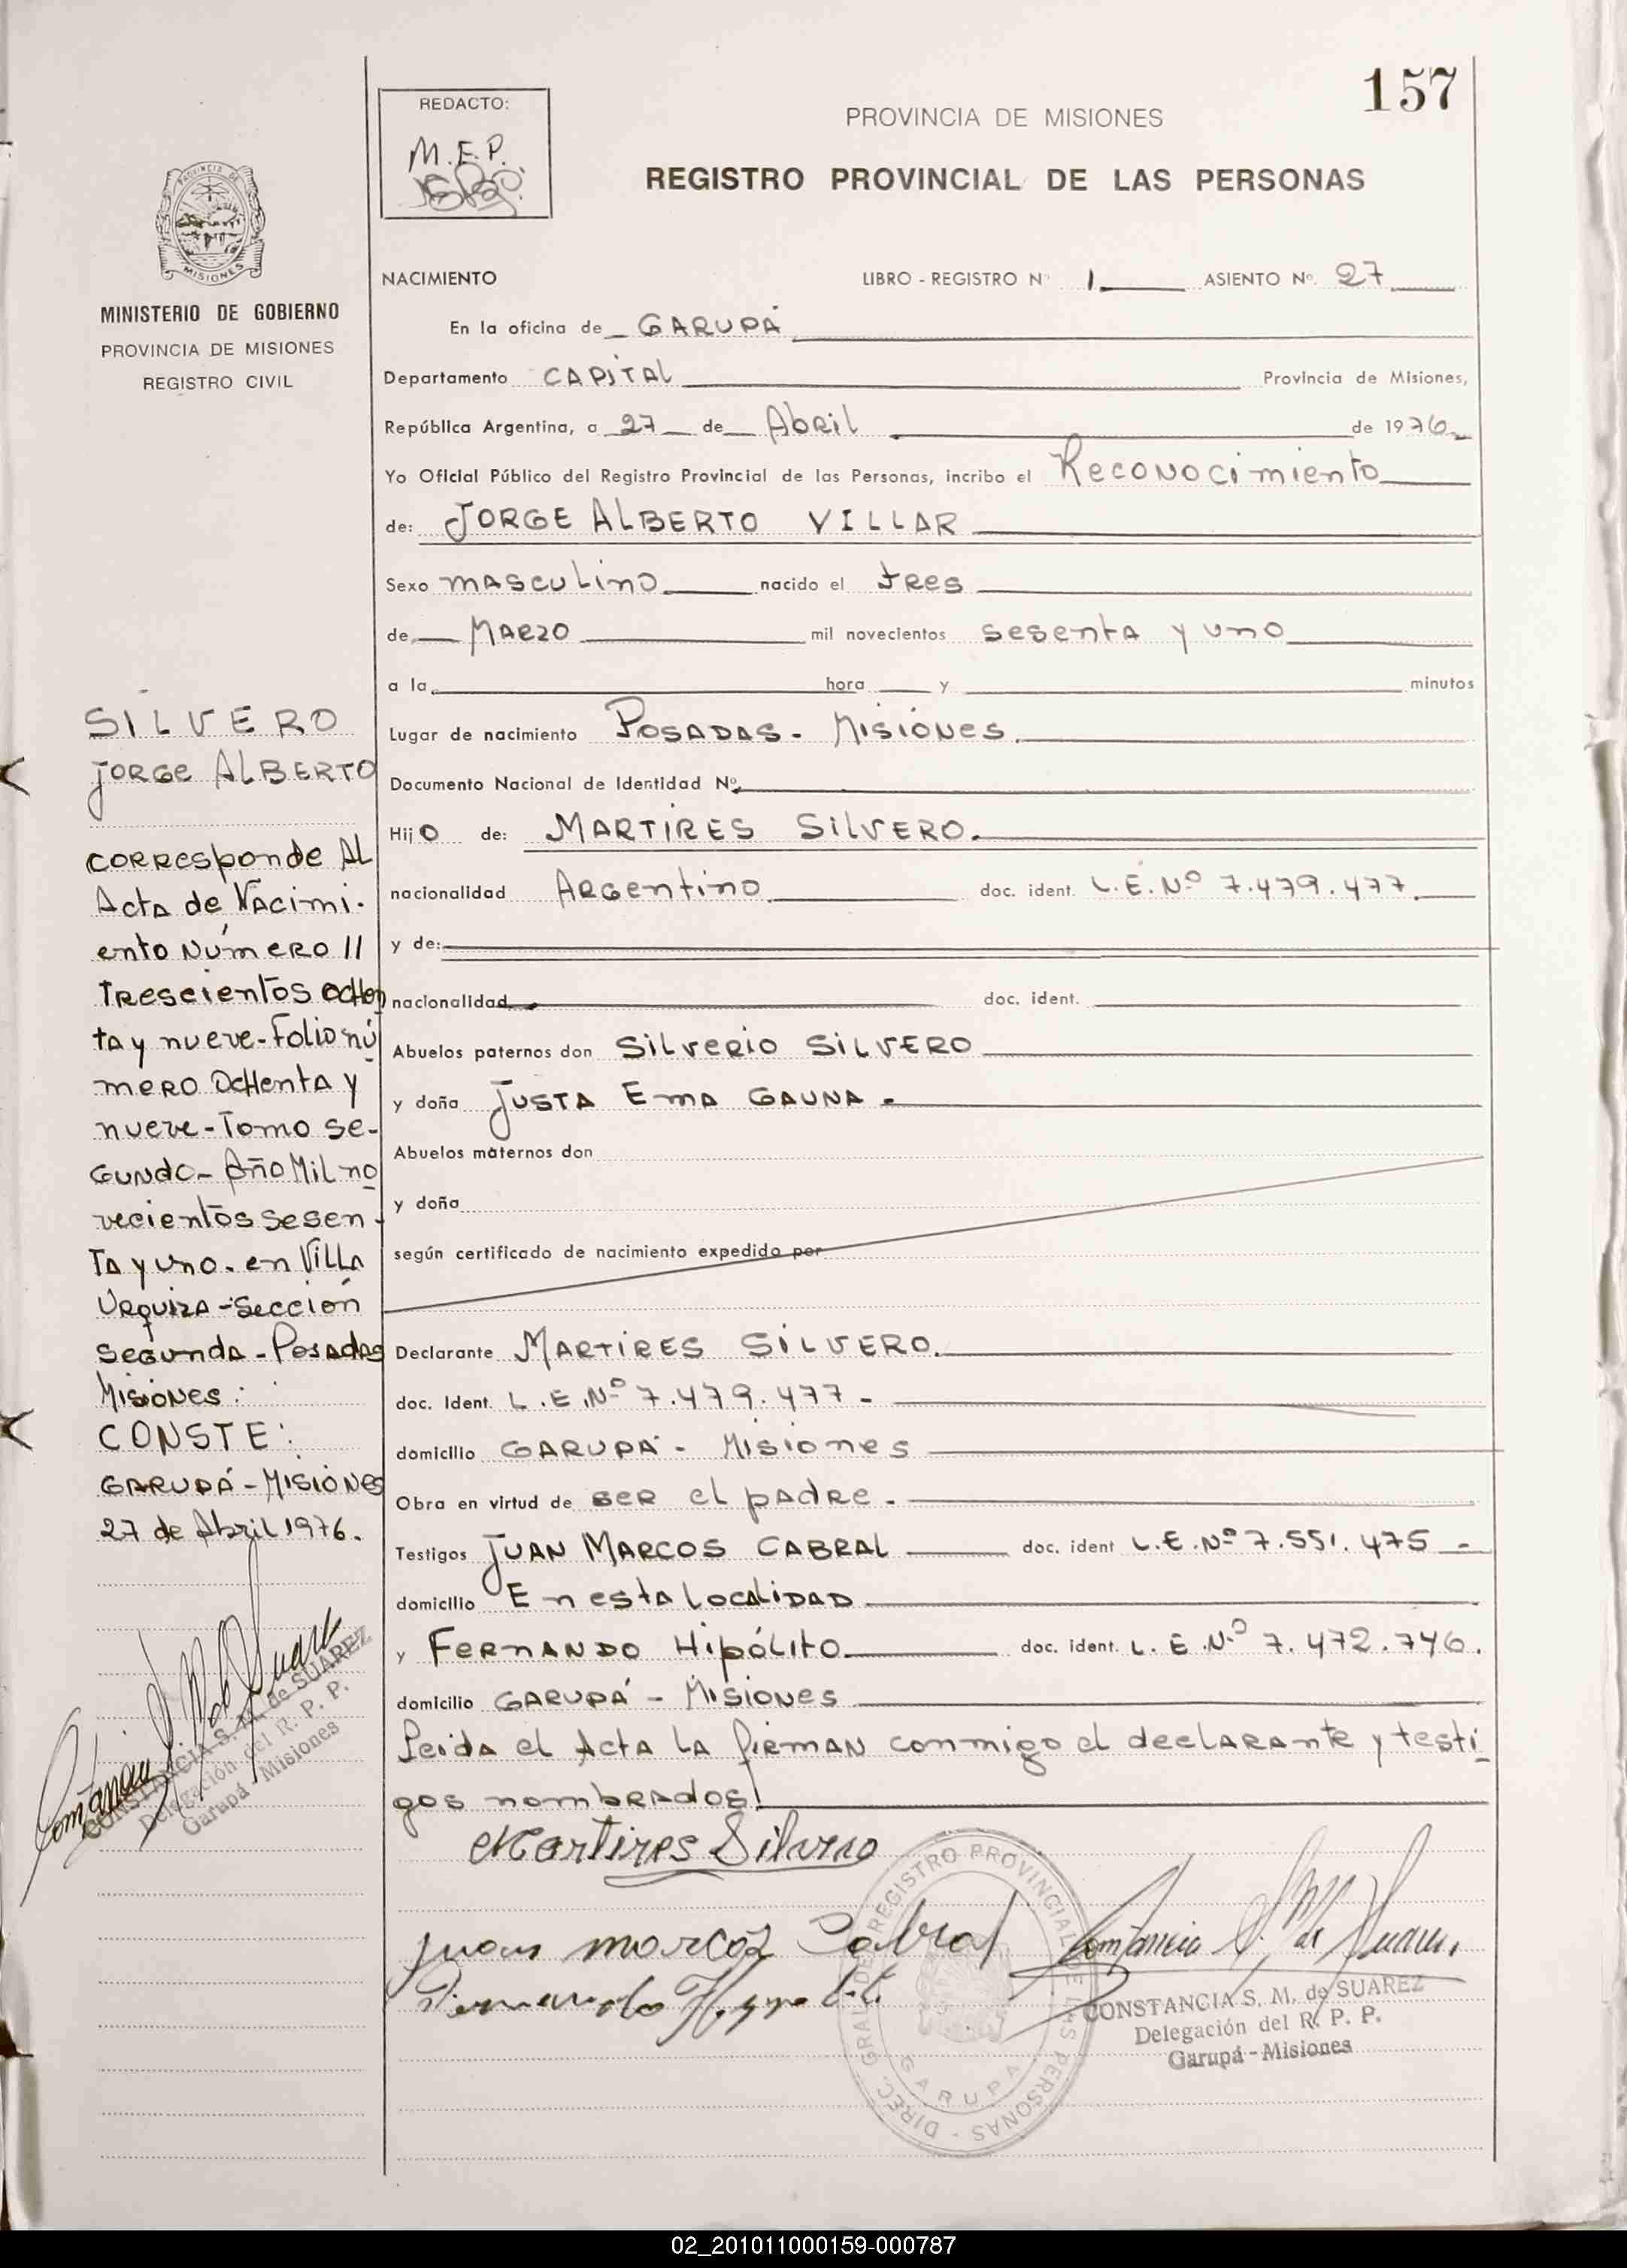 157
REDACTO:
M.E.P.
PROVINCIA DE MISIONES
REGISTRO PROVINCIAL DE LAS PERSONAS
PROVINCIA DE
MISIONES
MINISTERIO DE GOBIERNO
PROVINCIA DE MISIONES
REGISTRO CIVIL
NACIMIENTO LIBRO - REGISTRO Nº 1 ASIENTO Nº. 27
En la oficina de GARUPÁ
Departamento CAPITAL Provincia de Misiones,
República Argentina, a 27 de Abril de 1976
Yo Oficial Público del Registro Provincial de las Personas, incribo el Reconocimiento
de: JORGE ALBERTO VILLAR
Sexo masculino nacido el tres
de Marzo mil novecientos sesenta y uno
a la hora y minutos
Lugar de nacimiento POSADAS - Misiones.
Documento Nacional de Identidad Nº
Hijo de: MARTIRES SILVERO.
nacionalidad Argentino doc. ident. L.E. Nº 7.479.477
y de:
nacionalidad doc. ident.
Abuelos paternos don Silverio SILVERO
y doña JUSTA Ema GAUNA -
Abuelos maternos don
y doña
según certificado de nacimiento expedido por
Declarante MARTIRES SILVERO.
doc. Ident. L.E.Nº 7.479.477 -
domicilio GARUPÁ - Misiones
Obra en virtud de ser el padre -
Testigos JUAN MARCOS CABRAL doc. ident L.E.Nº 7.551.475 -
domicilio En esta Localidad
y Fernando Hipólito doc. ident. L.E Nº 7.472.746.
domicilio GARUPÁ - Misiones
Leida el Acta la firman conmigo el declarante y testi-
gos nombrados!
SILVERO
JORGE ALBERTO
corresponde Al
Acta de Nacimi-
ento Número //
Trescientos ochen
ta y nueve-Folio nú
mero ochenta y
nueve - Tomo se-
gundo - Año Mil no
vecientos sesen-
ta y uno. en Villa
Urquiza - Sección
Segunda - Posadas
Misiones:
CONSTE:
GARUPÁ - Misiones
27 de Abril 1976.
CONSTANCIA S. M. de SUAREZ
Delegación del R. P. P.
Garupá - Misiones
Martires Silvero
juan marcos Cabral
Fernando
DIREC. GRAL DEL REGISTRO PROVINCIAL DE LAS PERSONAS -
GARUPA
CONSTANCIA S. M. de SUAREZ
Delegación del R. P. P.
Garupá - Misiones
02_201011000159-000787